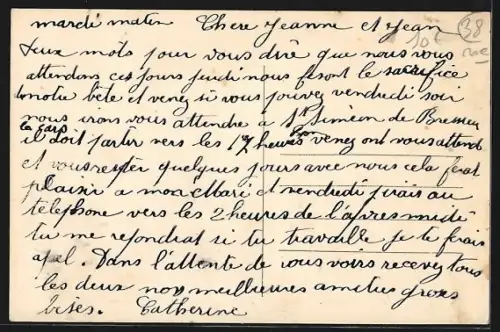 mardi matin Chere Jeanne et Jean
deux mots pour vous dire que nous vous
attendons ces jours jeudi nous feront le sacrifice
notre bête et venez si vous pouvez vendredi soir
nous irons vous attendre a St Siméon de Bressieux
le cars
il doit partir vers les 17 heures venez ont vous attend
et vous rester quelques jours avec nous cela ferat
plaisir a mon Mari et vendredi j'irais au
téléphone vers les 2 heures de l'apres midi
tu me repondrat si tu travaille je te ferais
apel. Dans l'attente de vous voirs recevez tous
les deux nos meilleures amities gross
bises. Catherine
38
10€